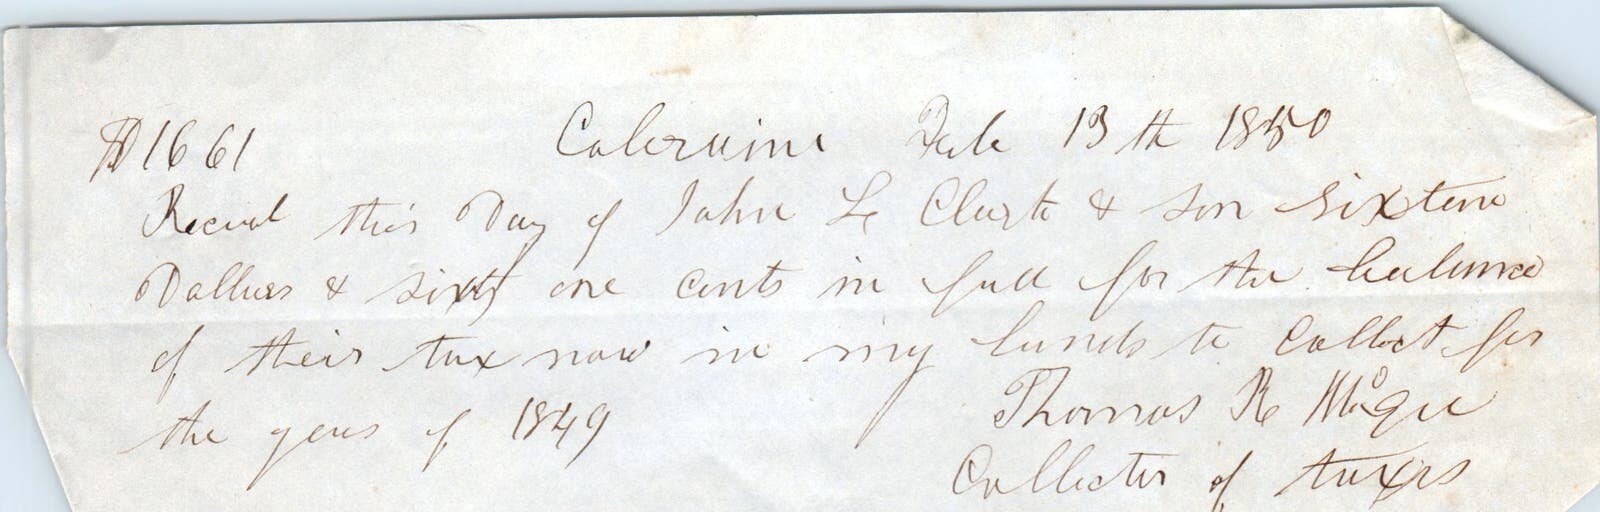 $1661 Colerain Feb 13th 1850
Receivd this Day of John L Clark & son sixteen
Dollars & sixty one cents in full for the balance
of their tax now in my hands to Collect for
the year of 1849 Thomas R
Collector of taxes